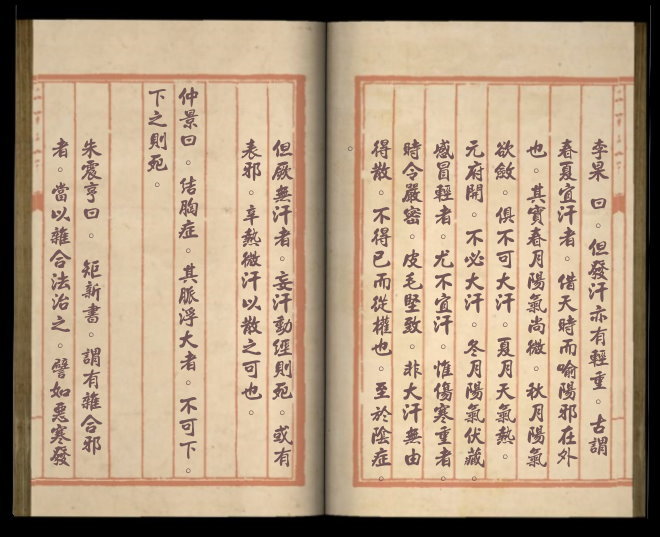 李杲曰。但發汗亦有輕重。古謂
春夏宜汗者。借天時而喻陽邪在外
也。其實春月陽氣尚微。秋月陽氣
欲斂。俱不可大汗。夏月天氣熱。
元府開。不必大汗。冬月陽氣伏藏。
感冒輕者。尤不宜汗。惟傷寒重者。
時令嚴密。皮毛堅致。非大汗無由
得散。不得已而從權也。至於陰症。
但厥無汗者。妄汗動經則死。或有
表邪。辛熱微汗以散之可也。
仲景曰。结胸症。其脈浮大者。不可下。
下之則死。
朱震亨曰。矩新書。謂有雜合邪
者。當以雜合法治之。譬如惡寒發